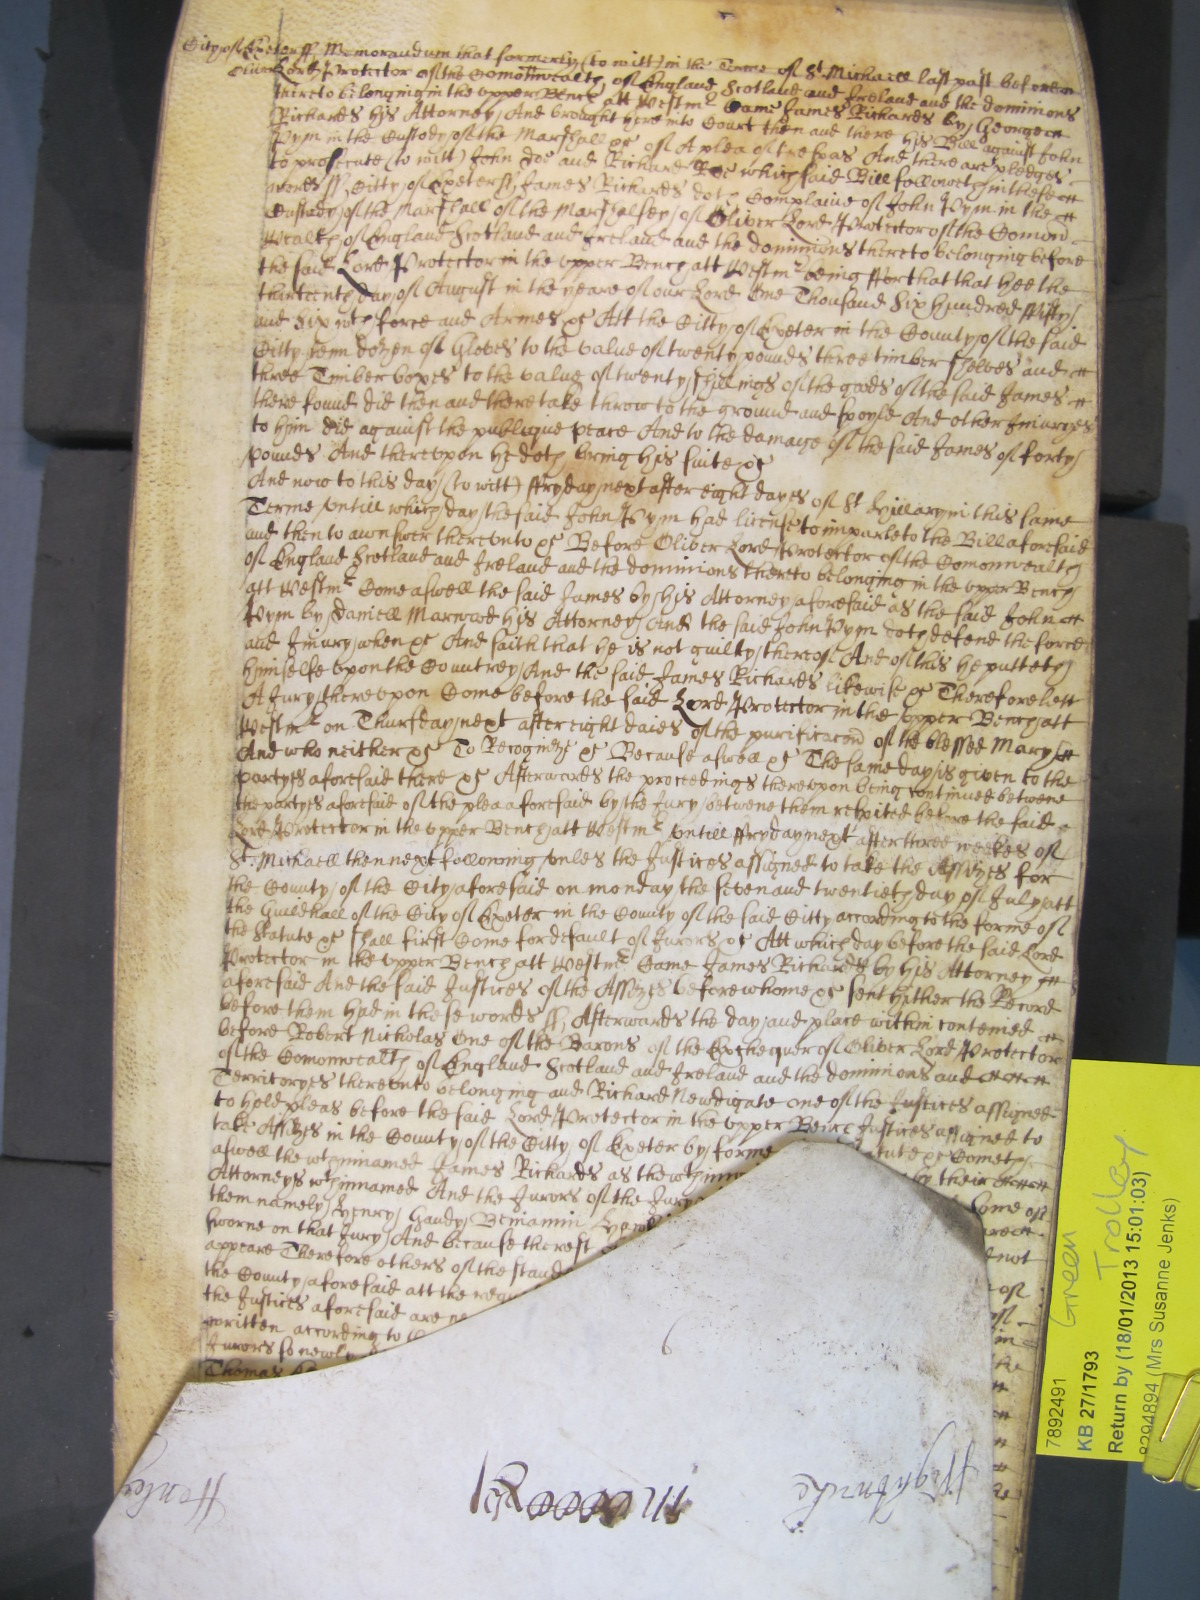 Citty of Exeter ss Memorandum that formerly (to witt) in the Terme of St Michaell last past before
Oliver Lord Protector of the Comonwealth of England Scotland and Ireland and the dominions
thereto belonging in the upper Bench att Westmr Came James Richards by George
Richards his Attorney And brought here into Court then and there his Bill against John
Pym in the Custody of the Marshall &c of A plea of trespas And there are pledges
to prosecute (to witt) John Doe and Richard Roe which said Bill followeth in these
words ss Citty of Exeter ss James Richards doth Complaine of John Pym in the
Custody of the Marshall of the Marshalsey of Oliver Lord Protector of the Comon
wealth of England Scotland and Ireland and the dominions thereto belonging before
the said Lord Protector in the upper Bench att Westmr being ffor that that hee the
thirteenth day of August in the yeare of our Lord One Thousand Six Hundred ffifty
and Six wth force and Armes &c Att the Citty of Exeter in the County of the said
Citty tenn dozen of Gloves to the value of twenty pounds three timber shelves and
three Timber boxes to the value of twenty shillings of the goods of the said James
there found did then and there take throw to the ground and spoyle And other Iniuryes
to him did against the publique peace And to the damage of the said James of forty
pounds And thereupon he doth bring his suite &c
And now to this day (to witt) ffryday next after eight dayes of St Hillary in this same
Terme untill which day the said John Pym had license to imparle to the Bill aforesaid
and then to answer thereunto &c Before Oliver Lord Protector of the Comonwealth
of England Scotland and Ireland and the dominions thereto belonging in the upper Bench
att Westmr Come aswell the said James by his Attorney aforesaid as the said John
Pym by Daniell Marwood his Attorney And the said John Pym doth defend the force
and Iniury when &c And saith that he is not guilty thereof And of this he putteth
himselfe upon the Countrey And the said James Richards likewise &c Therefore lett
A Jury thereupon Come before the said Lord Protector in the upper Bench att
Westmr on Thursday next after eight daies of the purificacon of the blessed Mary
And who neither &c To Recognize &c Because aswell &c The same day is given to the
partyes aforesaid there &c Afterwards the proceedings thereupon being continued betweene
the partyes aforesaid of the plea aforesaid by the Jury betweene them respited before the said
Lord Protector in the upper Bench att Westmr untill ffryday next after three weekes of
St Michaell then next following unles the Justices assigned to take the Assizes for
the County of the Citty aforesaid on monday the seven and twentieth day of July att
the Guildhall of the City of Exeter in the County of the said Citty according to the forme of
the Statute &c shall first Come for default of Jurors &c Att which day before the said Lord
Protector in the upper Bench att Westmr Came James Richards by his Attorney
aforesaid And the said Justices of the Assizes before whome &c sent hither the Record
before them had in these words ss Afterwards the day and place within contened
before Robert Nicholas One of the Barons of the Exchequer of Oliver Lord Protector
of the Comonwealth of England Scotland and Ireland and the dominions and
Territoryes thereunto belonging and Richard Newdigate one of the Justices assigned
to hold pleas before the said Lord Protector in the upper Bench Justices assigned to
take Assizes in the County of the Citty of Exeter by forme &c Cometh
aswell the wthinnamed James Richards as the by their
Attorneys wthinnamed And the Jurors of the Jury Come of
them namely Henry Gandy Beniamin are
sworne on that Jury And because the rest not
appeare Therefore others of the of
the County aforesaid att the
the Justices aforesaid are
written according to
Jurors so newly
Thomas
7892491 Green
KB 27/1793 Trolley
Return by (18/01/2013 15:01:03)
8294894 (Mrs Susanne Jenks)
Henley
Wightwicke